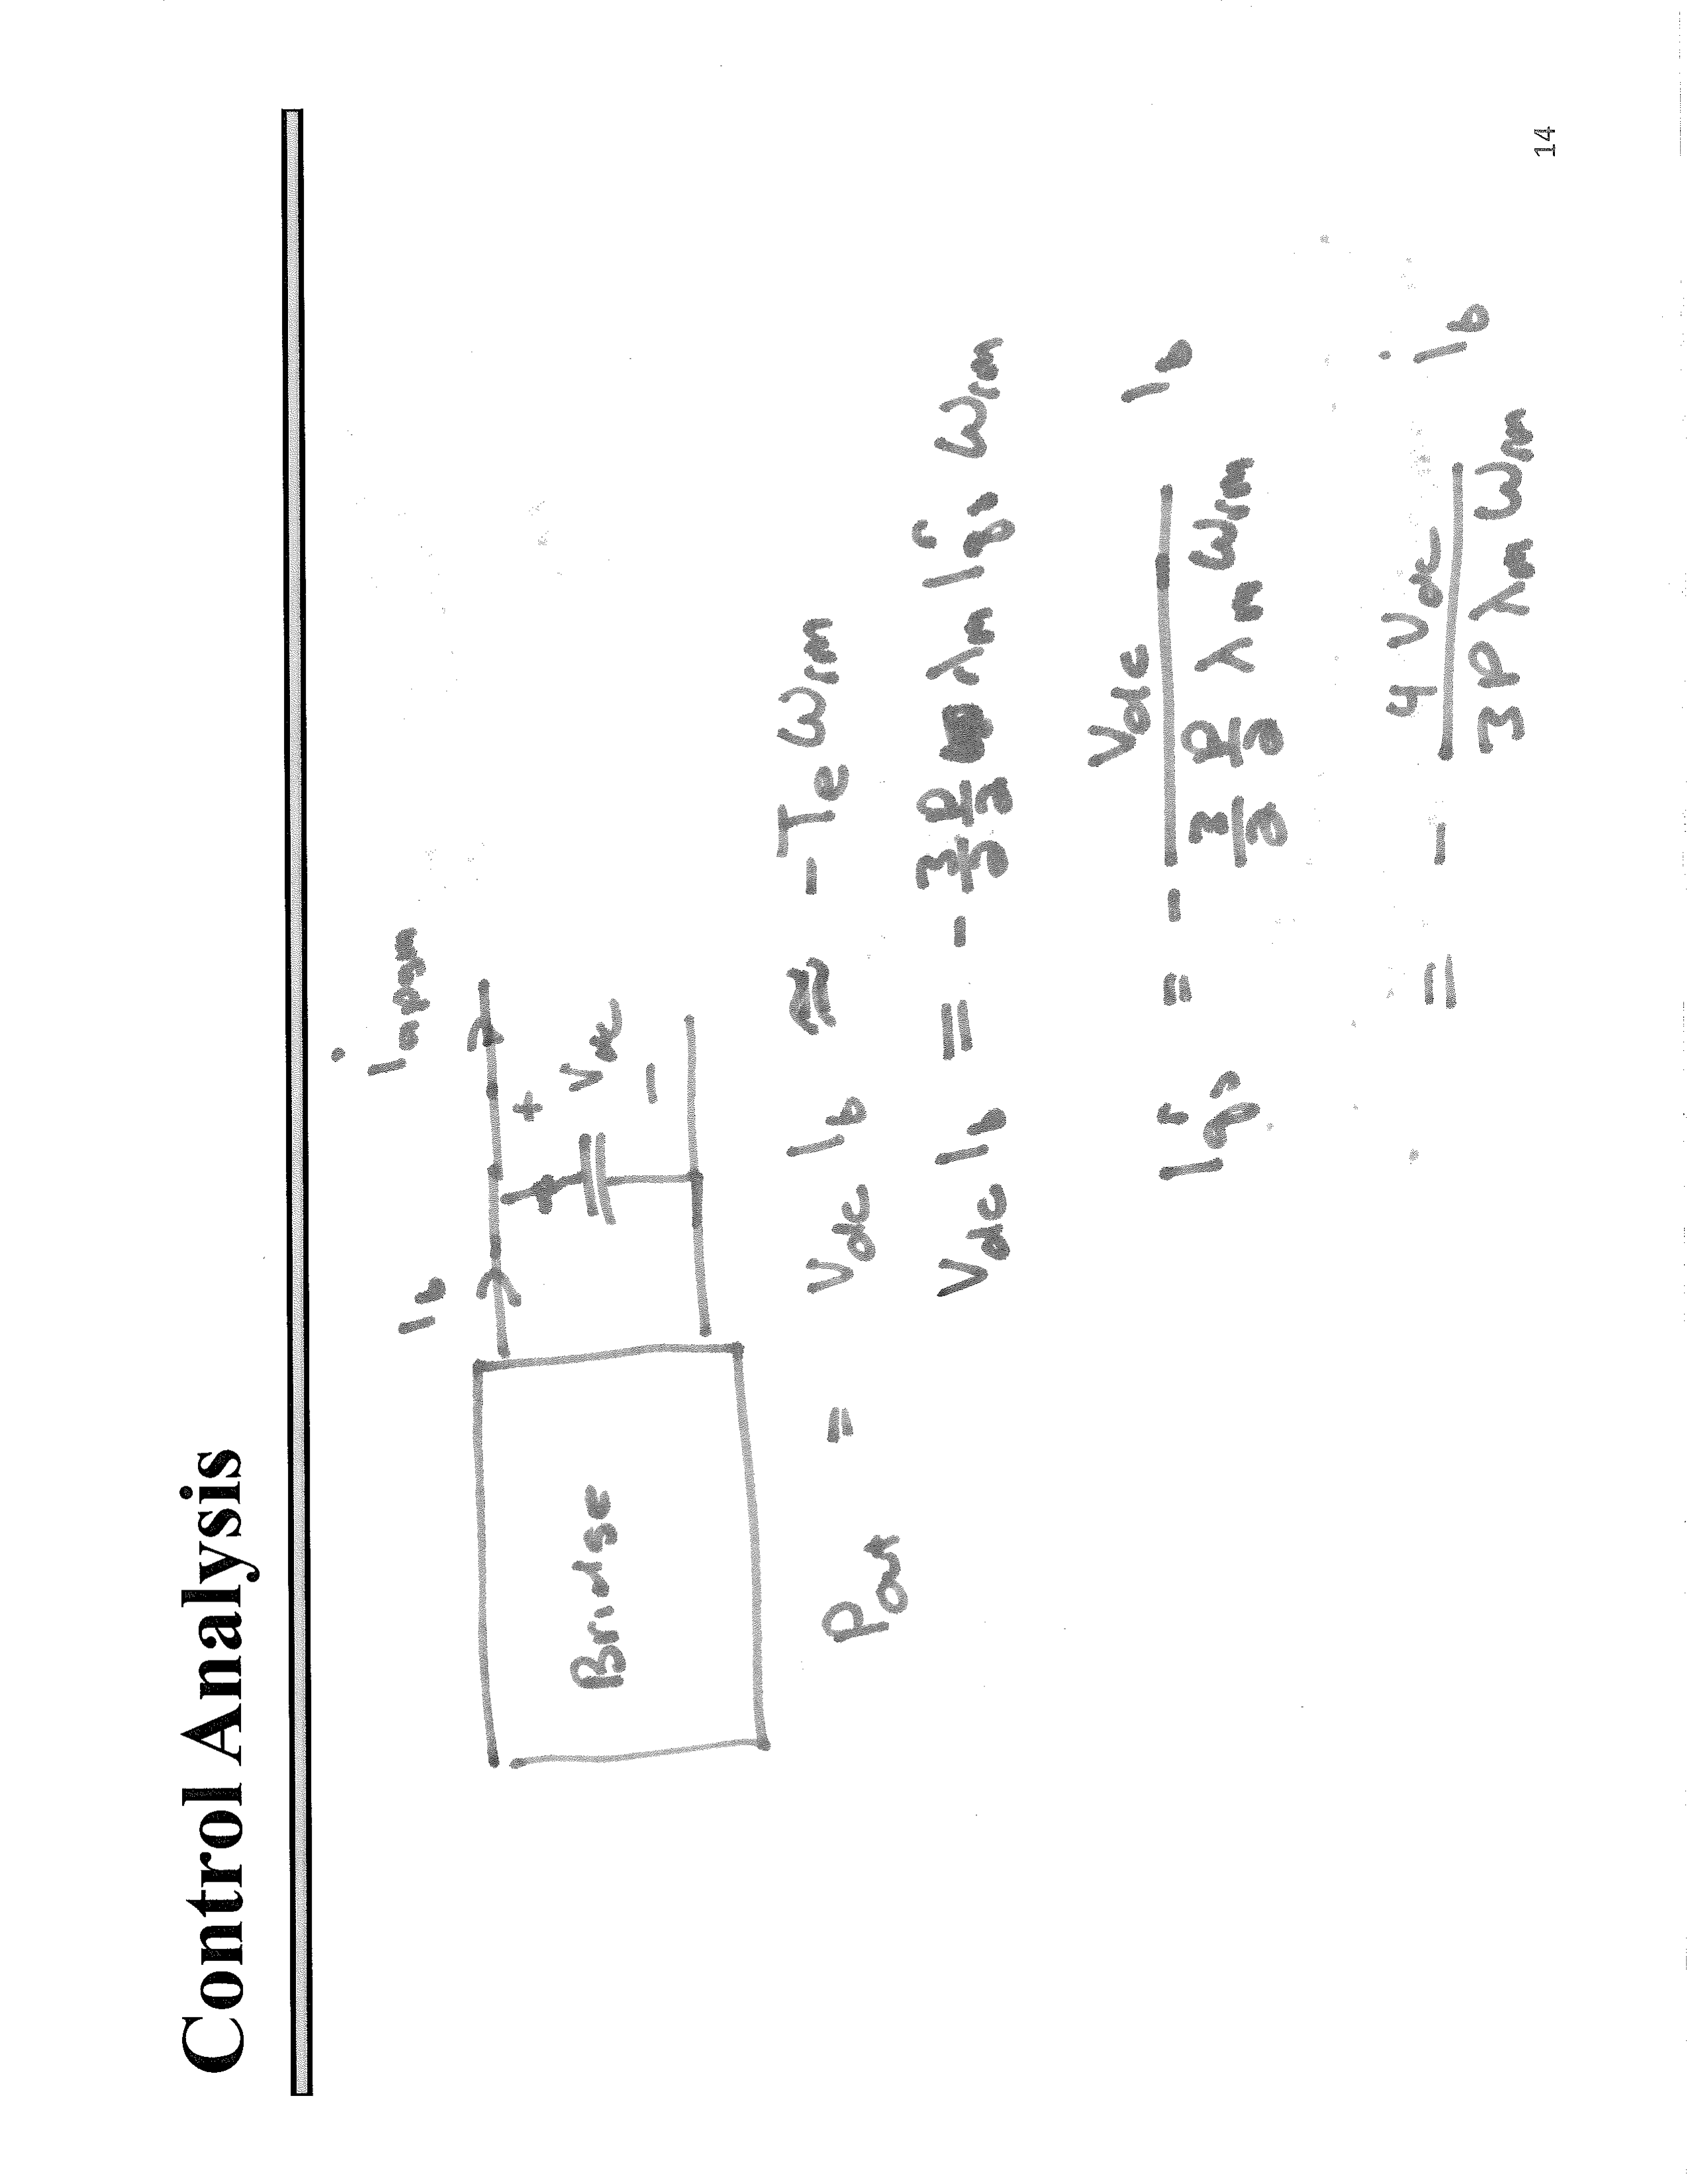 Control Analysis
i_b
i_apsm
+
v_dc
-
Bridge
P_out = V_dc i_b ≈ - T_e ω_rm
V_dc i_b = - 3/2 P/2 λ_m i_qs^r ω_rm
i_qs^r = - V_dc / (3/2 P/2 λ_m ω_rm) i_b
= - 4 V_dc / (3 P λ_m ω_rm) i_b
14